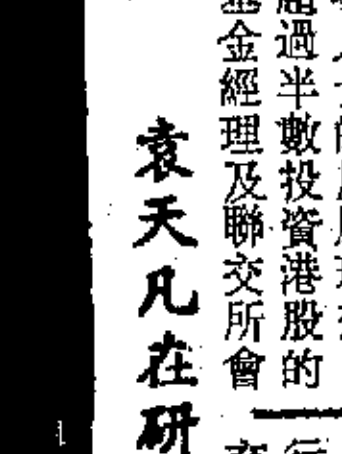 過半數投資港股的
金經理及聯交所會
袁天凡在研